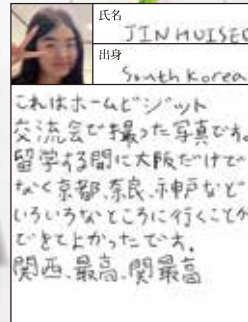 氏名
JIN HUISEO
出身
South Korea
これはホームビジット
交流会で撮った写真でね
留学する間に大阪だけで
なく京都、奈良、神戸など
いろいろなところに行くことが
できてよかったです。
関西、最高、関最高